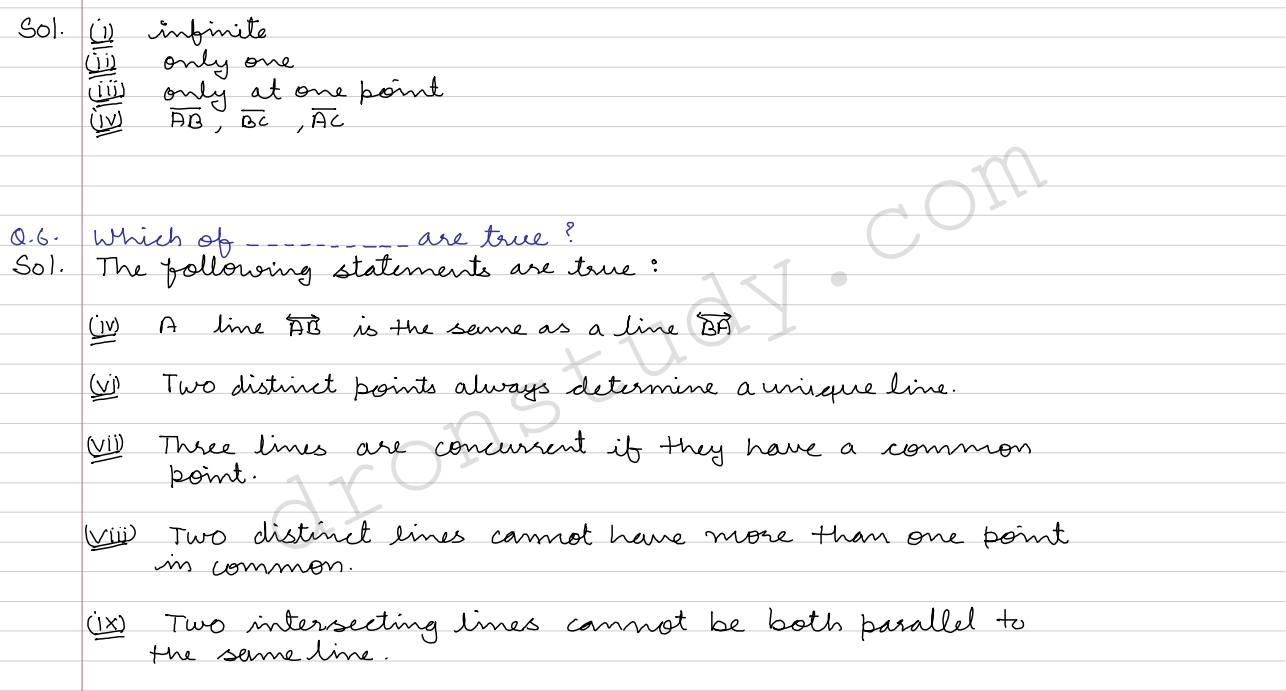 Sol. (i) infinite
(ii) only one
(iii) only at one point
(iv) A̅B̅, B̅C̅, A̅C̅
Q.6. Which of ---------- are true?
Sol. The following statements are true:
(iv) A line A⃡B is the same as a line B⃡A
(vi) Two distinct points always determine a unique line.
(vii) Three lines are concurrent if they have a common
point.
(viii) Two distinct lines cannot have more than one point
in common.
(ix) Two intersecting lines cannot be both parallel to
the same line.
dronstudy.com